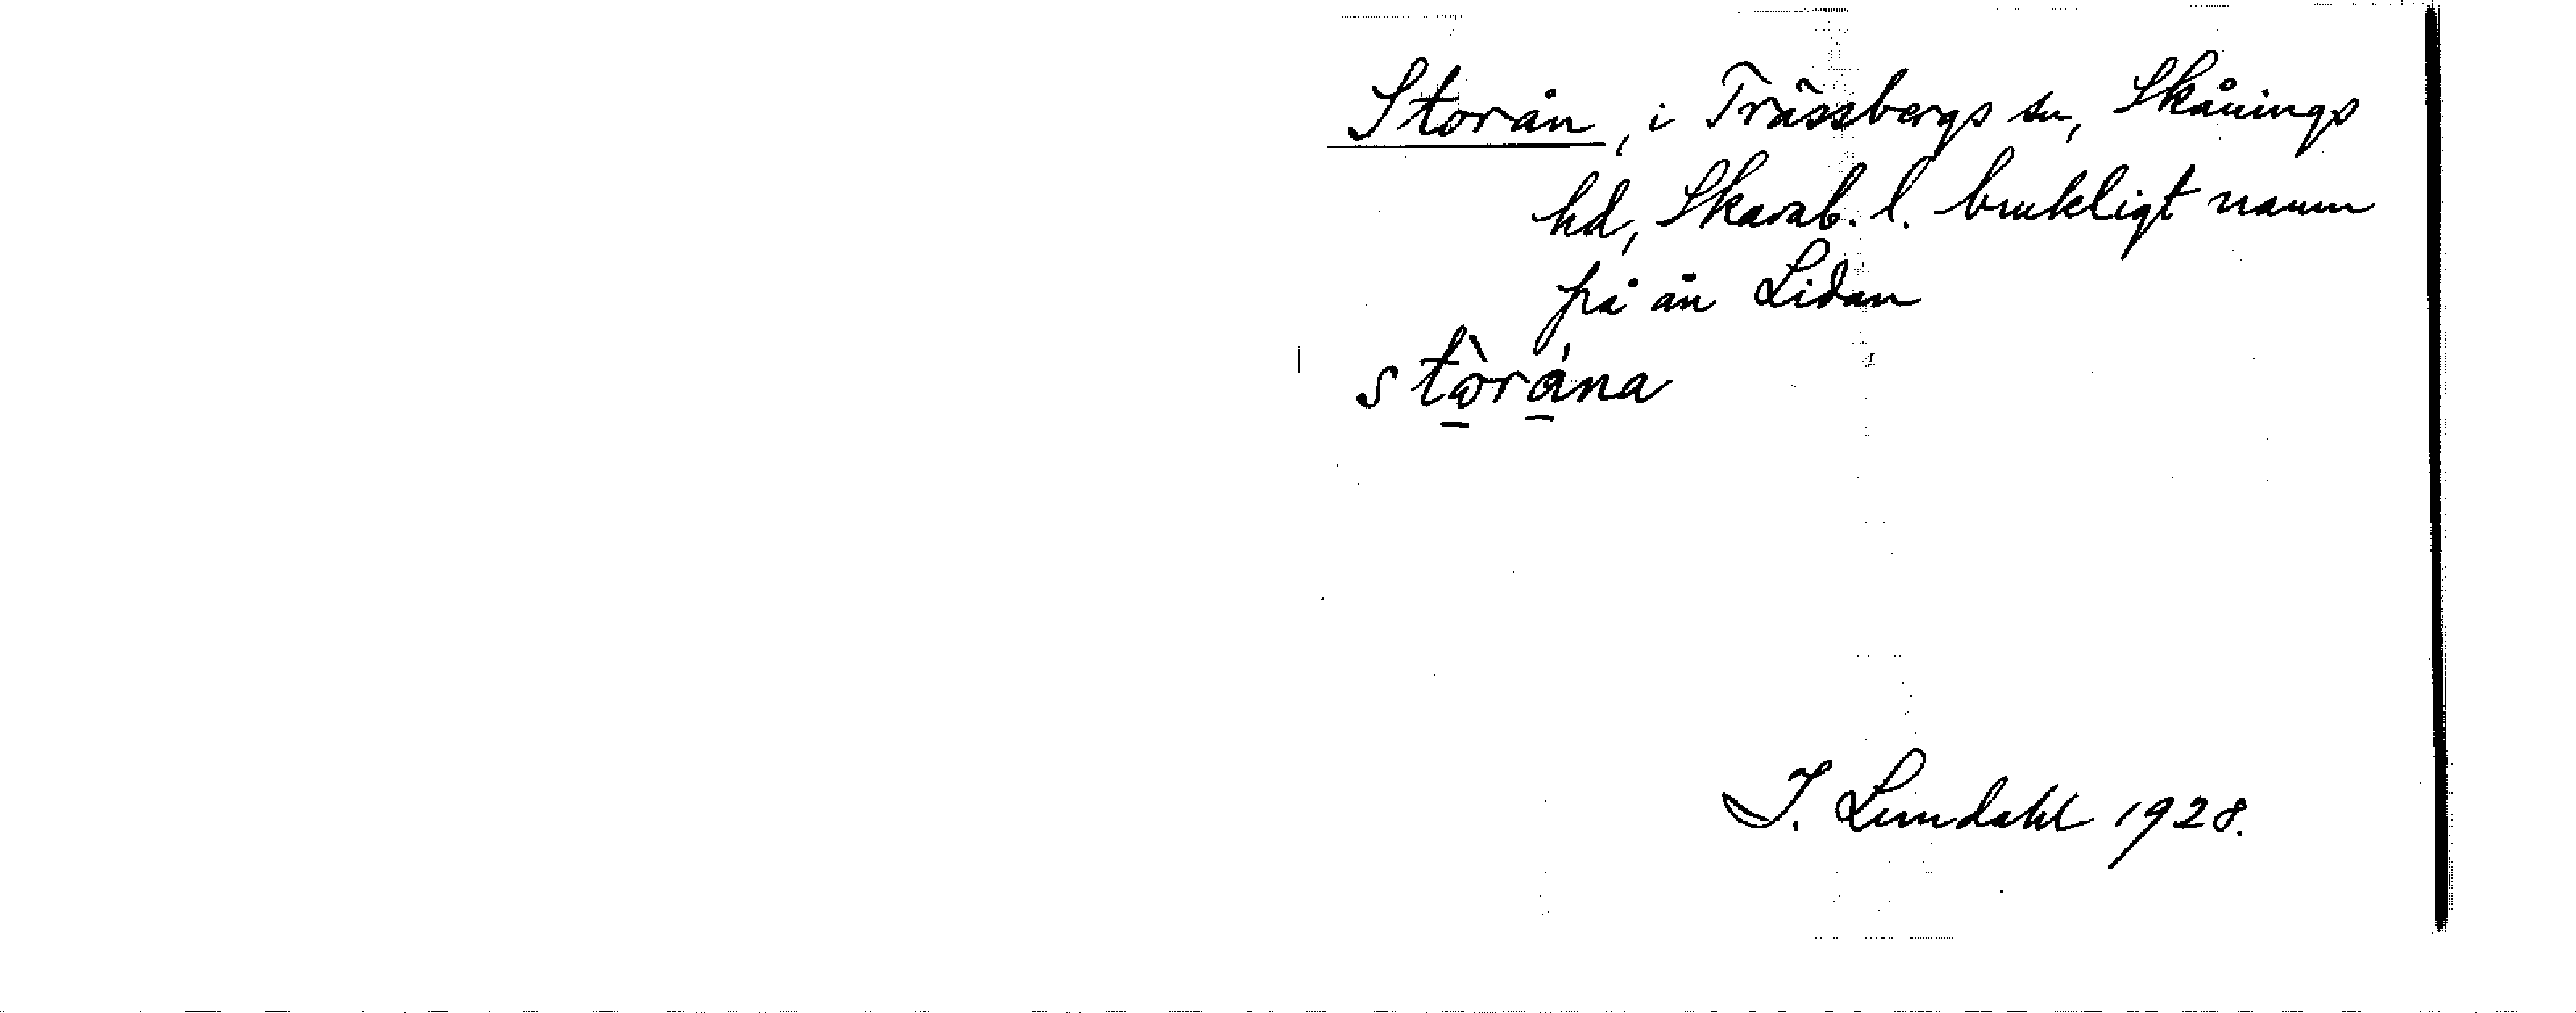 Storån, i Trässbergs sn, Skånings
hd, Skarab. l. brukligt namn
på ån Lidan
stòrána
I. Lundahl 1928.